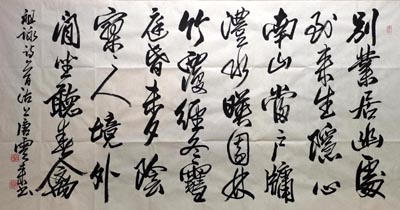 別業居幽處
到来生隱心
南山當户牖
澧水暎園林
竹覆經冬雪
庭昏未夕陰
寥々人境外
閒坐聽春禽
祖詠詩一首